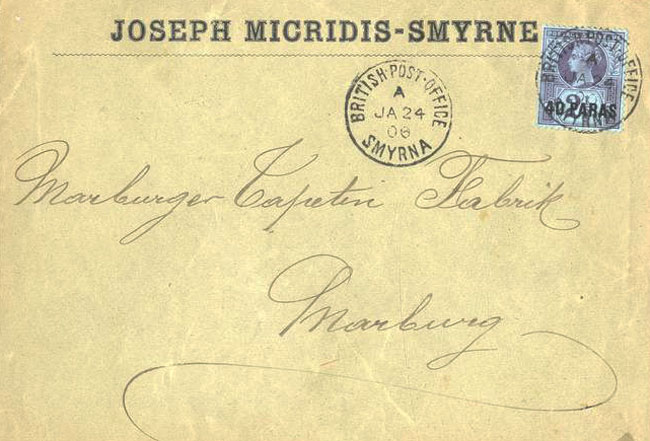 JOSEPH MICRIDIS-SMYRNE
BRITISH·POST·OFFICE
A
JA 24
06
SMYRNA
BRITISH·POST·OFFICE
A
JA
SMYRNA
40 PARAS
Marburger Tapeten Fabrik
Marburg